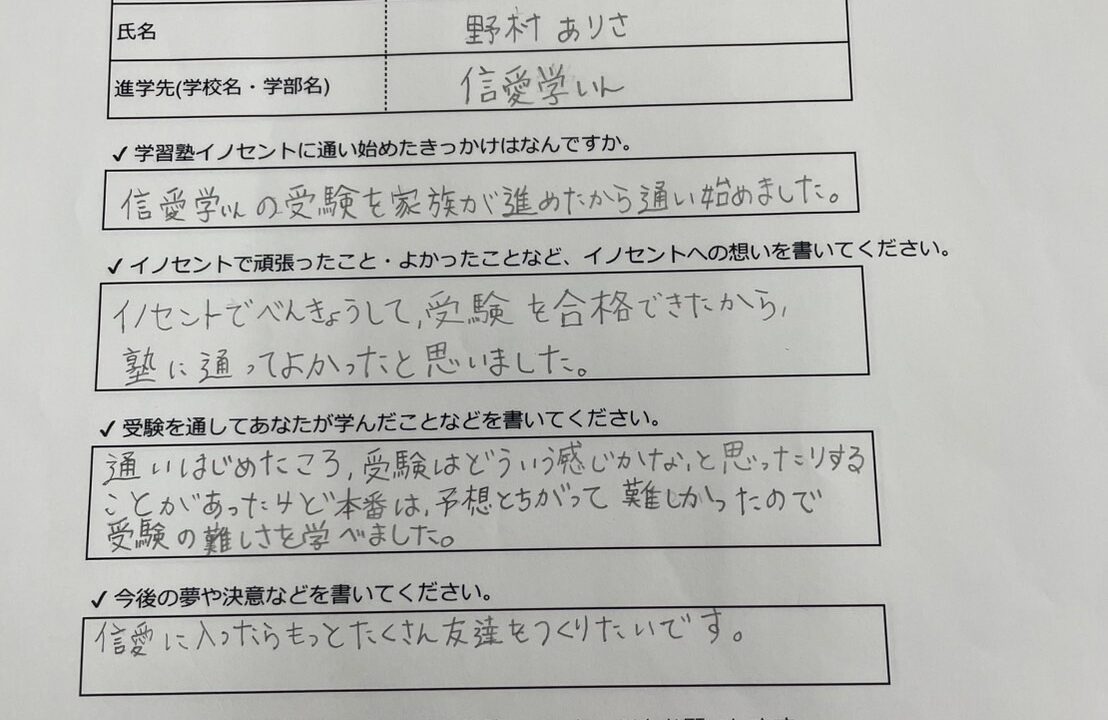 氏名 野村 ありさ
進学先(学校名・学部名) 信愛学いん
✓ 学習塾イノセントに通い始めたきっかけはなんですか。
信愛学いんの受験を家族が進めたから通い始めました。
✓ イノセントで頑張ったこと・よかったことなど、イノセントへの想いを書いてください。
イノセントでべんきょうして、受験を合格できたから、
塾に通ってよかったと思いました。
✓ 受験を通してあなたが学んだことなどを書いてください。
通いはじめたころ、受験はどういう感じかな、と思ったりする
ことがあったけど本番は、予想とちがって難しかったので
受験の難しさを学べました。
✓ 今後の夢や決意などを書いてください。
信愛に入ったらもっとたくさん友達をつくりたいです。